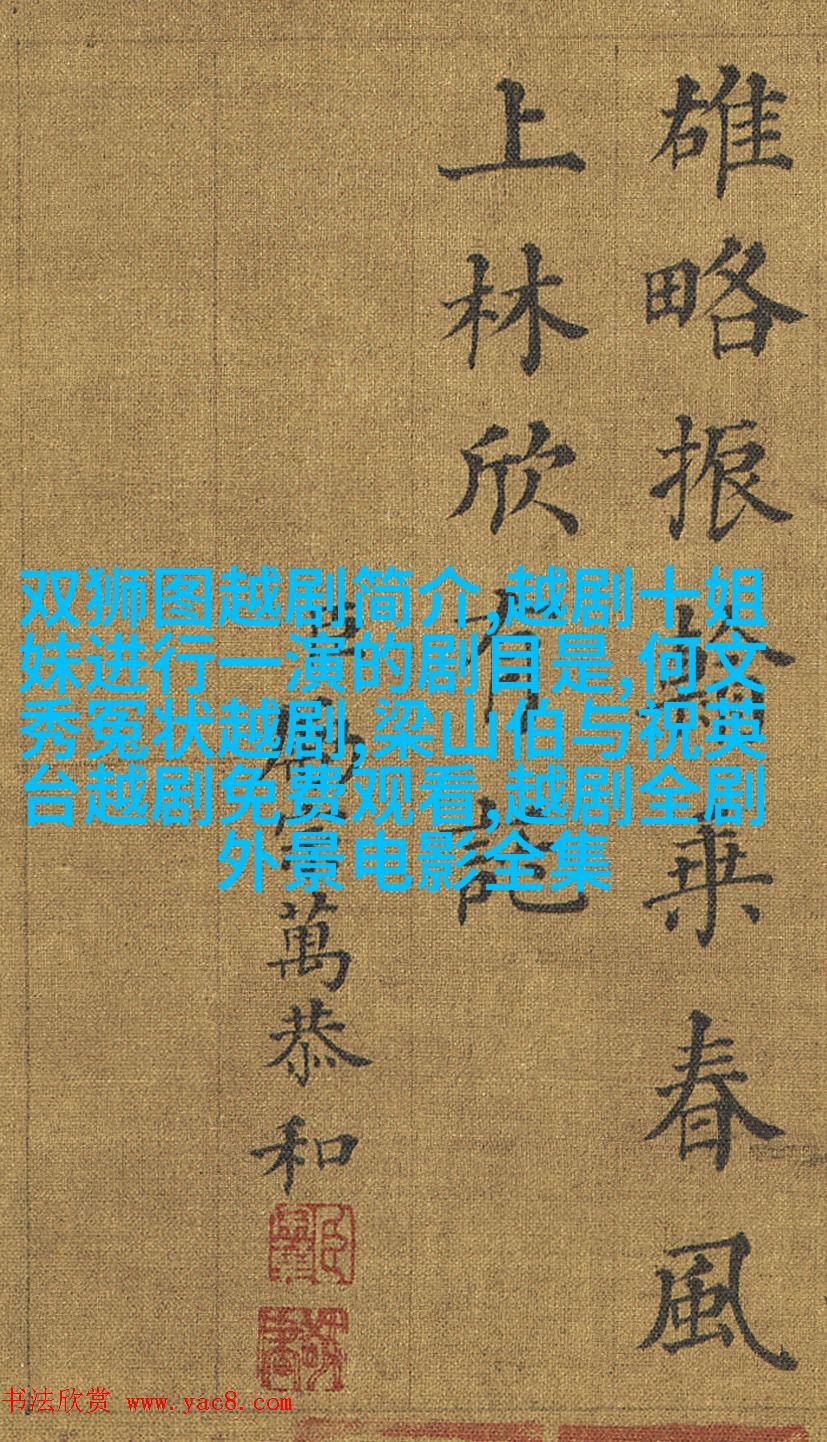 雄略振乘春風
上林欣有託
萬恭和
双狮图越剧简介,越剧十姐
妹进行一演的剧目是,何文
秀冤状越剧,梁山伯与祝英
台越剧免费观看,越剧全剧
外景电影全集
书法欣赏 www.yac8.com